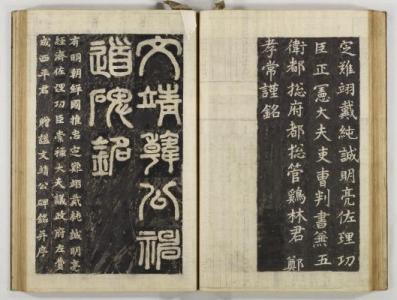 定難翊戴純誠明亮佐理功
臣正憲大夫吏曹判書兼五
衛都緫府都緫管鷄林君 鄭
孝常謹銘
文靖韓公神
道碑銘
有明朝鮮國推忠定難翊戴純誠明亮
經濟佐理功臣崇祿大夫議政府左贊
成西平君 贈謚文靖公碑銘并序